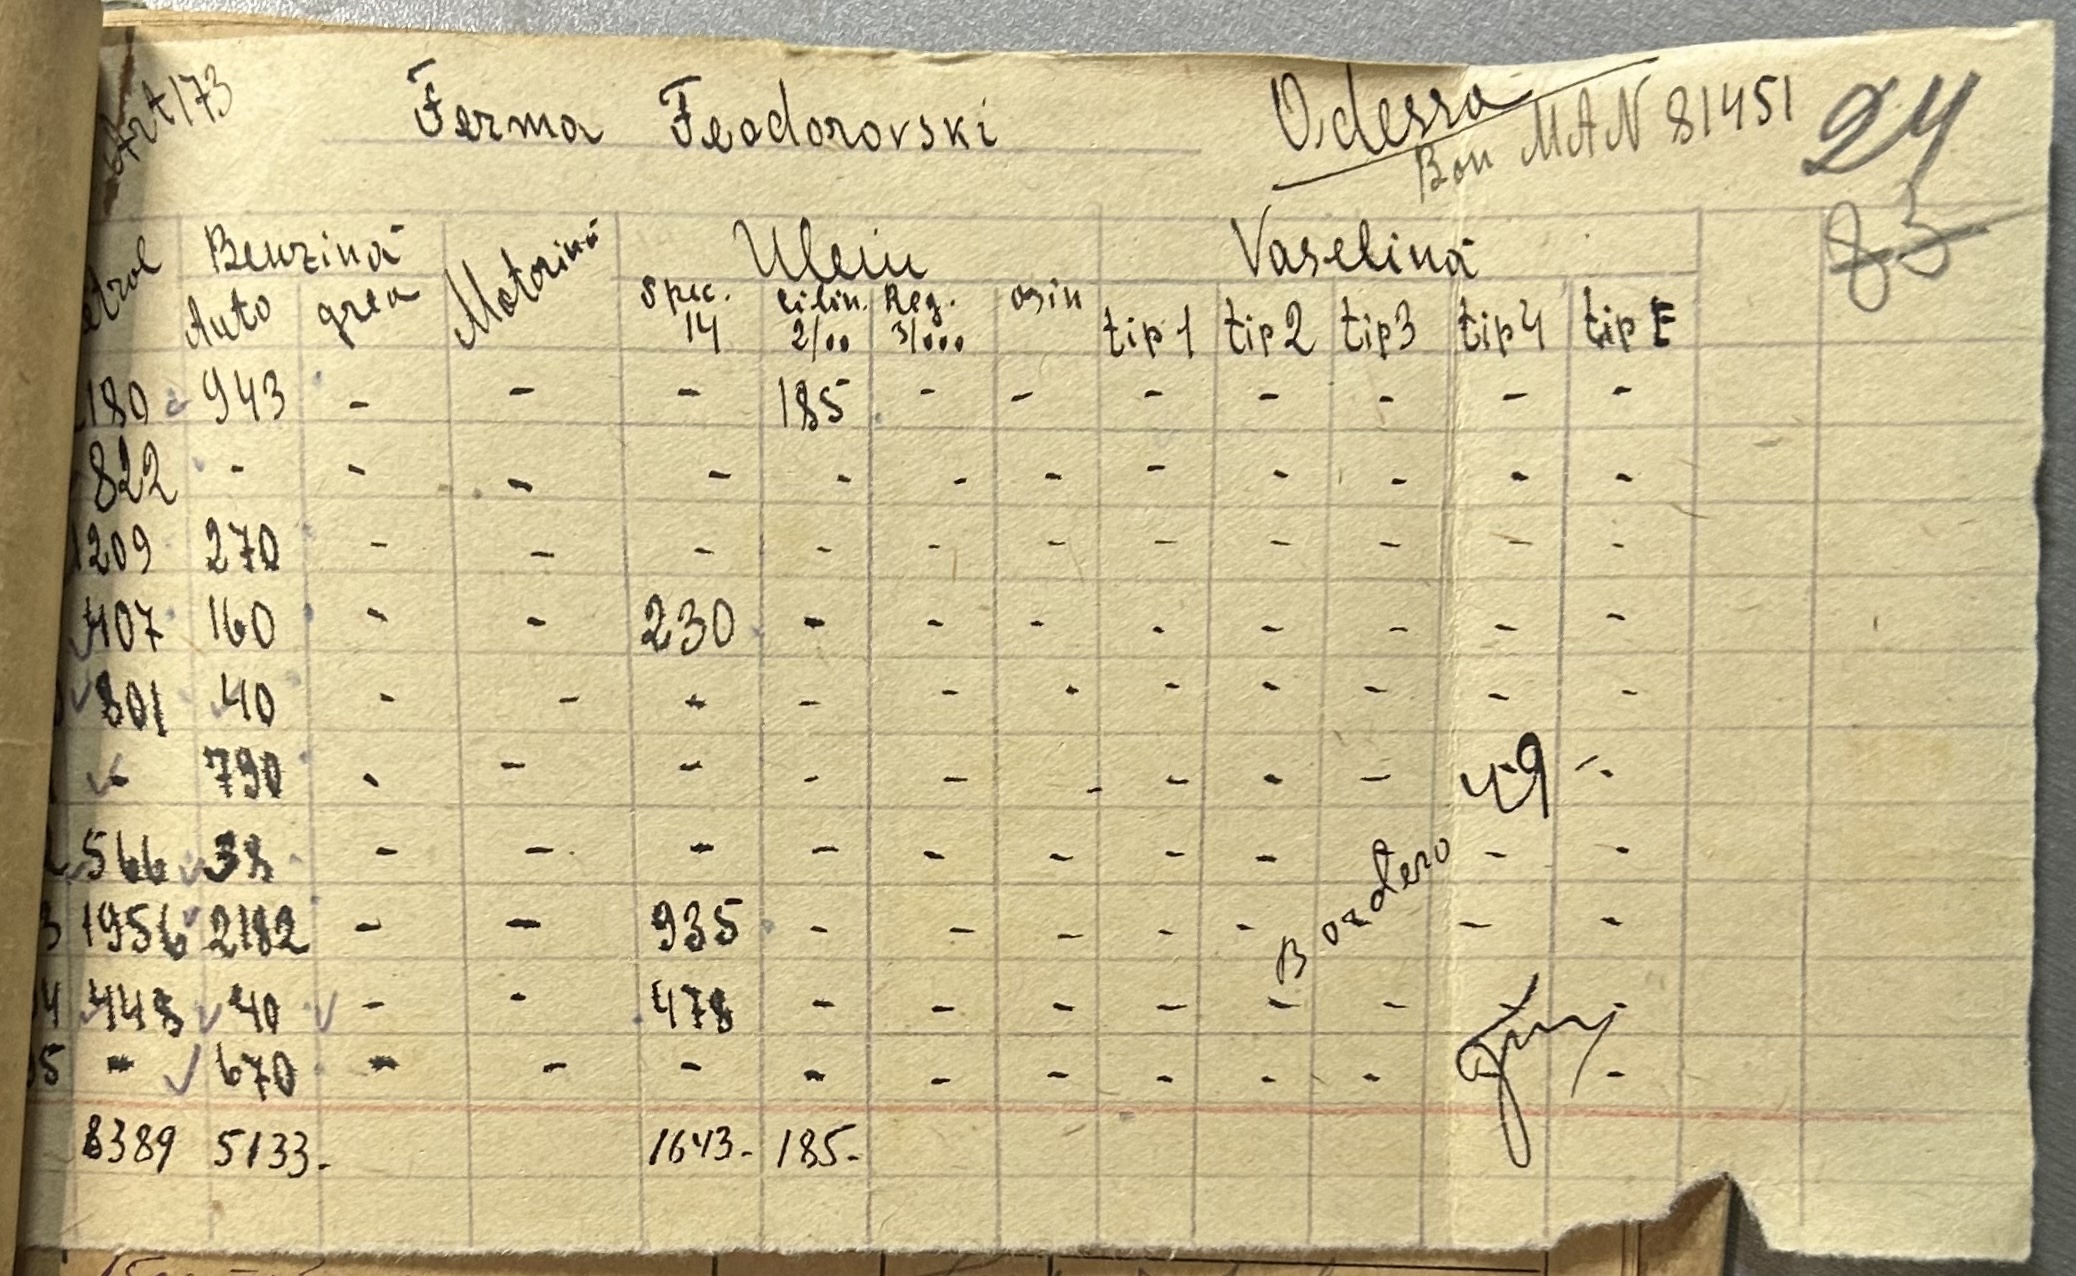 Art 173 Ferma Feodorovski Odessa 24
Bon MAN 81451
83
etrol Benzină Motorină Uleiu Vaselina
Auto grea spec. 14 cilin. 2/00 Reg. 3/000 osin tip 1 tip 2 tip 3 tip 4 tip E
180 943 - - - 185 - - - - - - -
822 - - - - - - - - - - - -
1209 270 - - - - - - - - - - -
407 160 - - 230 - - - - - - - -
801 40 - - - - - - - - - - -
- 790 - - - - - - - - - 49 -
566 38 - - - - - - - - - -
3 1956 2182 - - 935 - - - - - - -
4 448 40 - - 478 - - - - - - -
5 - 670 - - - - - - - - - -
Bordero
8389 5133. 1643. 185.